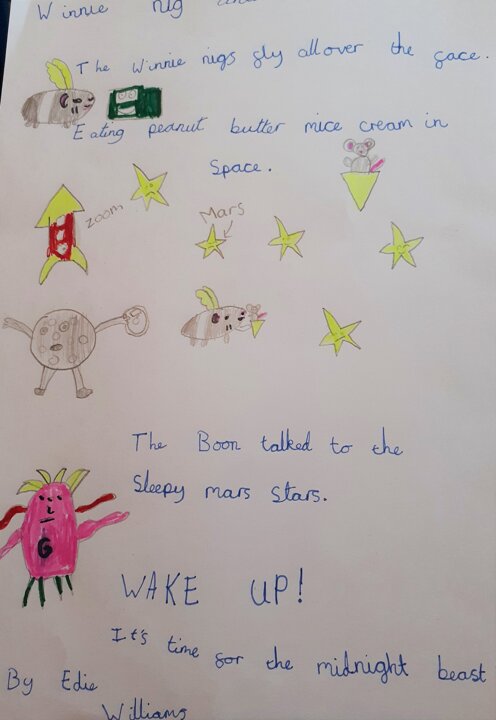 Winnie nig
The Winnie nigs fly all over the face.
Eating peanut butter mice cream in
Space.
zoom
Mars
The Boon talked to the
Sleepy mars stars.
G
WAKE UP!
It's time for the midnight beast
By Edie
Williams